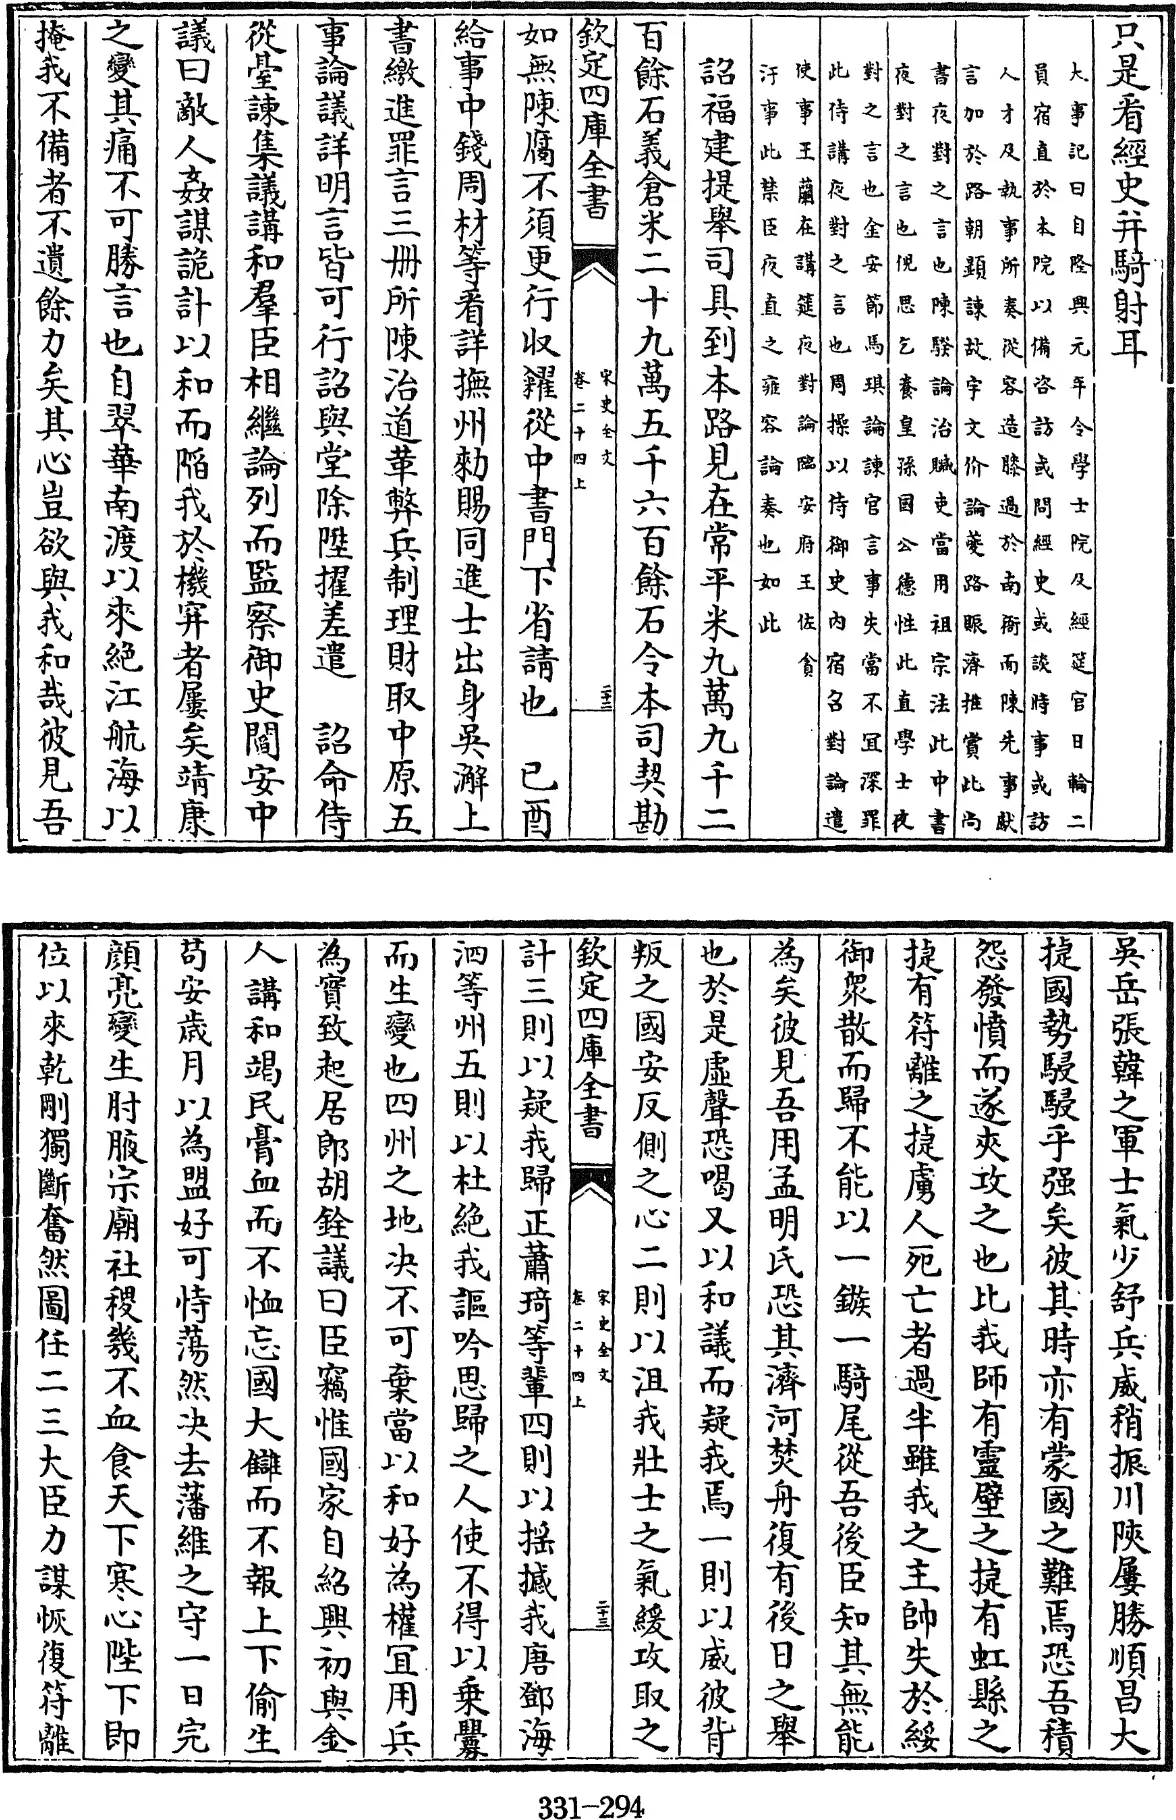 只是看經史并騎射耳
大事記曰自隆興元年令學士院及經筵官日輪二
員宿直於本院以備咨訪或問經史或談時事或訪
人才及執事所奏從容造膝過於南衙而陳先事獻
言加於路朝顯諫故宇文价論蘷路賑濟推賞此尚
書夜對之言也陳騤論治贓吏當用祖宗法此中書
夜對之言也倪思乞養皇孫國公德性此直學士夜
對之言也金安節馬琪論諫官言事失當不宜深罪
此侍講夜對之言也周操以侍御史内宿召對論遣
使事王藺在講筵夜對論臨安府王佐貪
汙事此禁臣夜直之雍容論奏也如此
詔福建提舉司具到本路見在常平米九萬九千二
百餘石義倉米二十九萬五千六百餘石令本司契勘
欽定四庫全書
宋史全文
卷二十四上
二十二
如無陳腐不須更行收糴從中書門下省請也　已酉
給事中錢周材等看詳撫州勑賜同進士出身吳澥上
書繳進罪言三册所陳治道革弊兵制理財取中原五
事論議詳明言皆可行詔與堂除陞擢差遣　詔命侍
從臺諫集議講和羣臣相繼論列而監察御史閻安中
議曰敵人姦謀詭計以和而陷我於機穽者屢矣靖康
之變其痛不可勝言也自翠華南渡以來絶江航海以
掩我不備者不遺餘力矣其心豈欲與我和哉彼見吾
吳岳張韓之軍士氣少舒兵威稍振川陜屢勝順昌大
捷國勢駸駸乎强矣彼其時亦有蒙國之難焉恐吾積
怨發憤而遂夾攻之也比我師有靈壁之捷有虹縣之
捷有符離之捷虜人死亡者過半雖我之主帥失於綏
御衆散而歸不能以一鏃一騎尾從吾後臣知其無能
為矣彼見吾用孟明氏恐其濟河焚舟復有後日之舉
也於是虛聲恐喝又以和議而疑我焉一則以威彼背
叛之國安反側之心二則以沮我壯士之氣緩攻取之
欽定四庫全書
宋史全文
卷二十四上
二十三
計三則以疑我歸正蕭琦等輩四則以揺撼我唐鄧海
泗等州五則以杜絶我謳吟思歸之人使不得以乗釁
而生變也四州之地决不可棄當以和好為權宜用兵
為實致起居郎胡銓議曰臣竊惟國家自紹興初與金
人講和竭民膏血而不恤忘國大讎而不報上下偷生
苟安歳月以為盟好可恃蕩然决去藩維之守一日完
顔亮變生肘腋宗廟社稷幾不血食天下寒心陛下即
位以來乾剛獨斷奮然圖任二三大臣力謀恢復符離
331-294